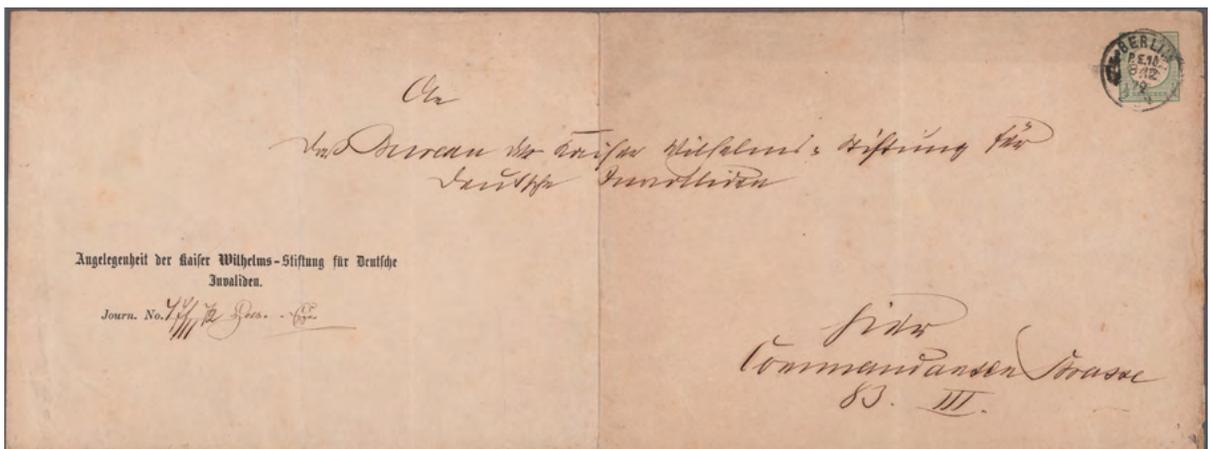 An
Das Bureau der Kaiser Wilhelms-Stiftung für
Deutsche Invaliden
Angelegenheit der Kaiser Wilhelms-Stiftung für Deutsche
Invaliden.
Journ. No.
hier
Commandanten Strasse
83. III.
BERLIN